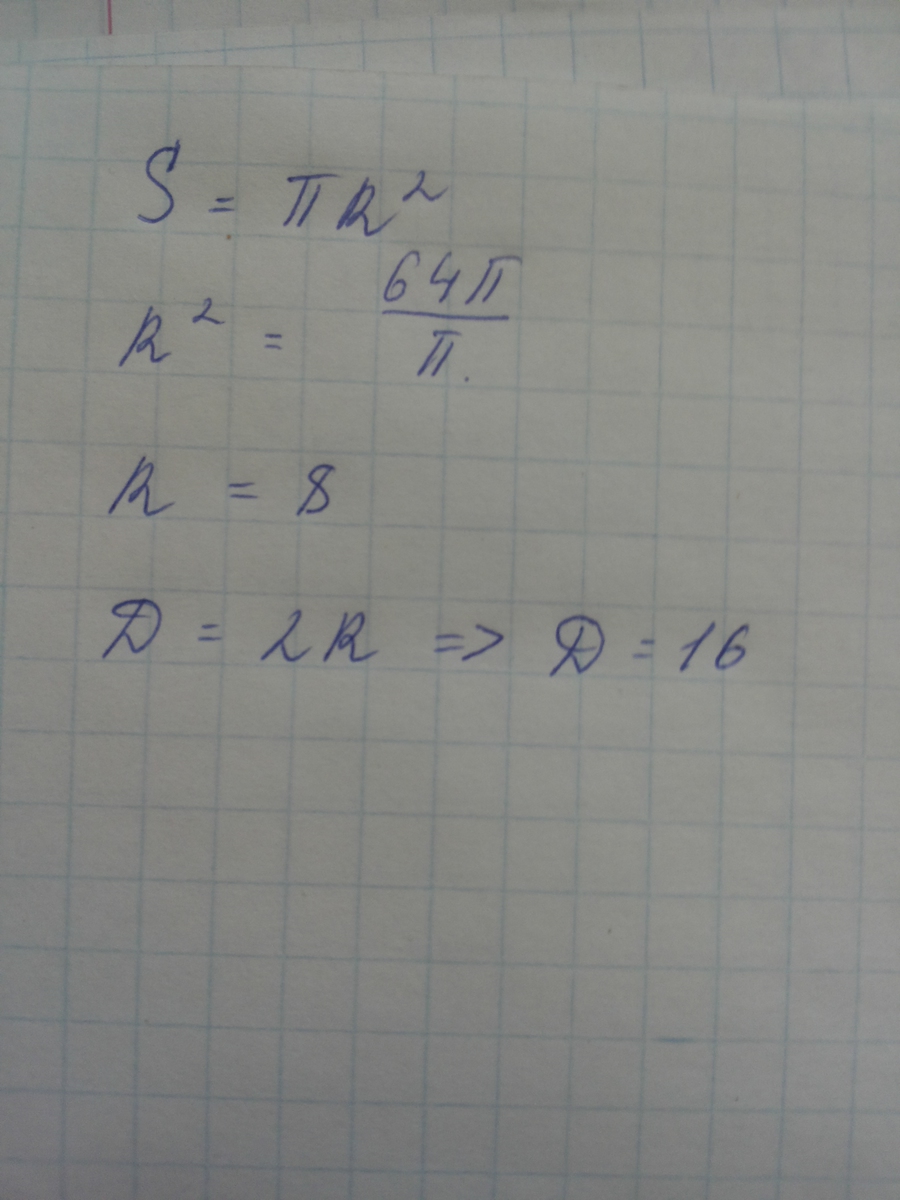 S = πR²
R² = 64π/π.
R = 8
D = 2R => D = 16